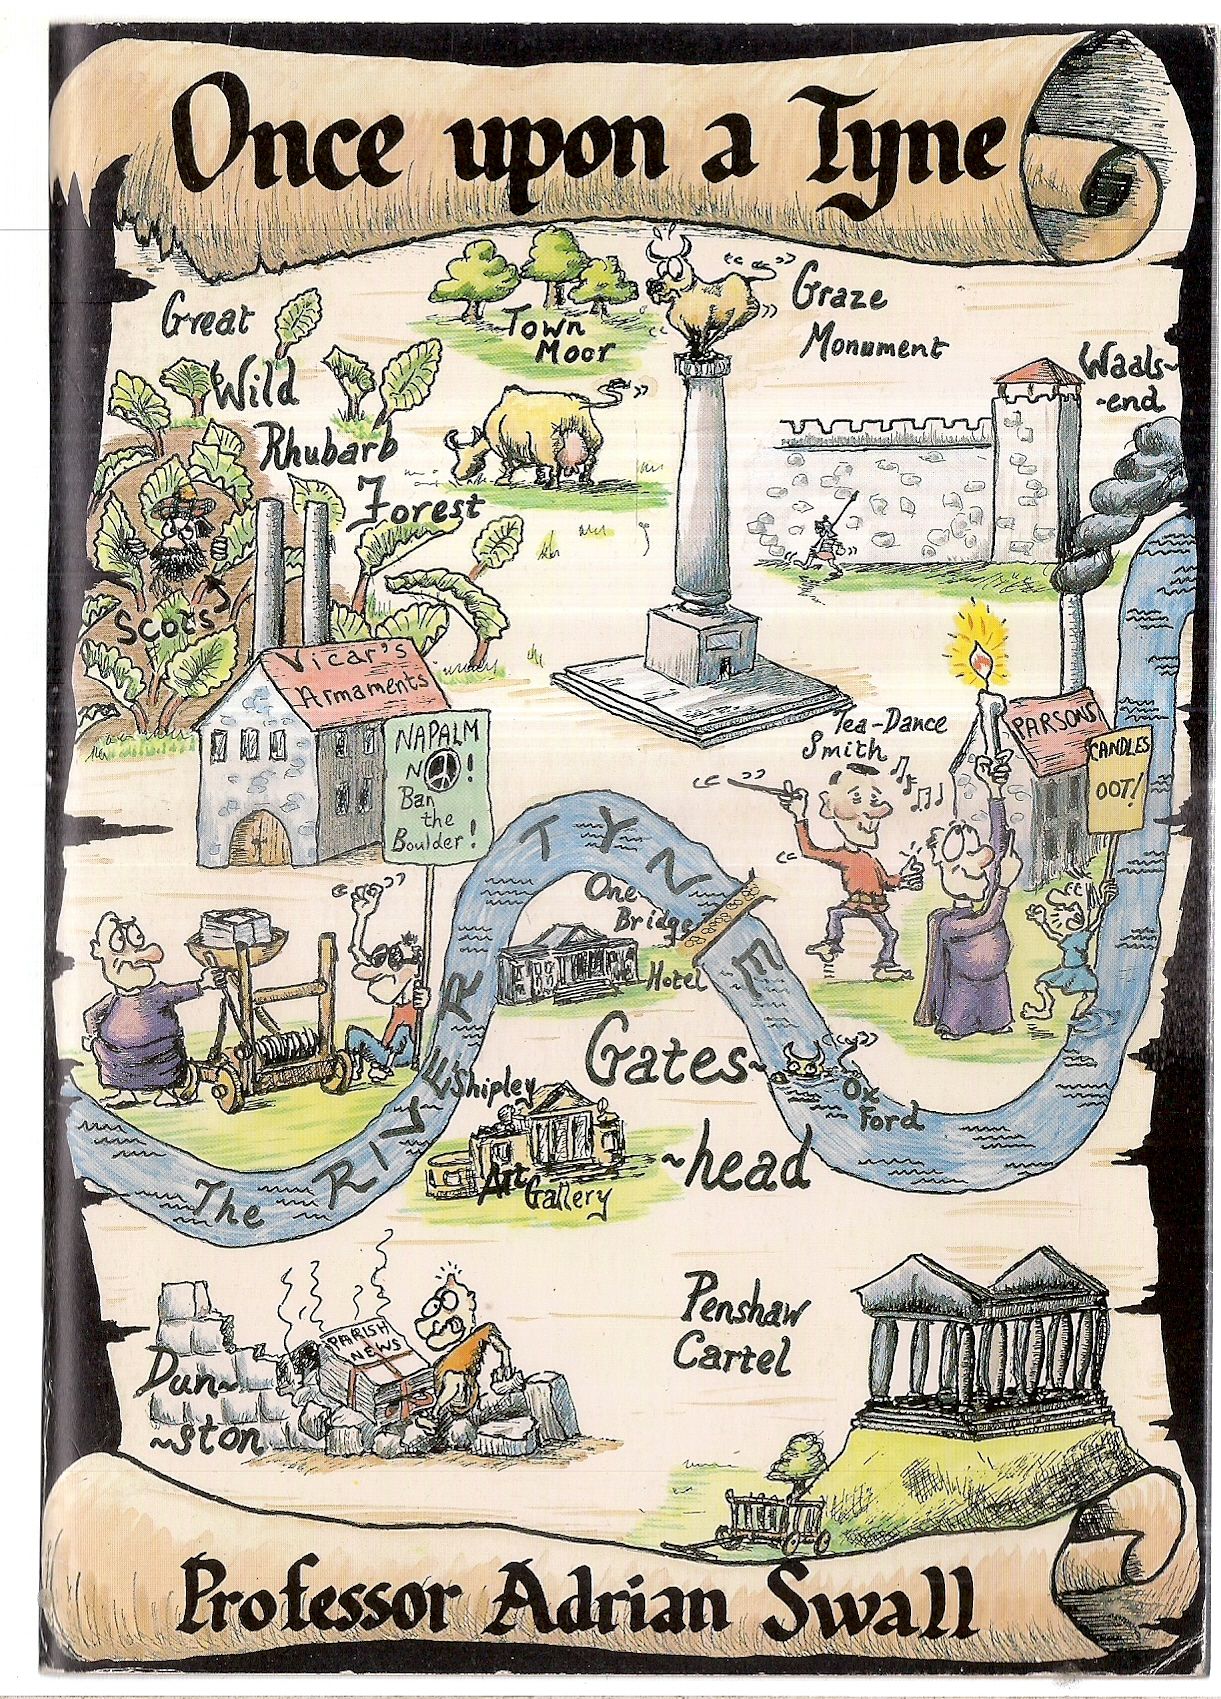 Once upon a Tyne
Great
Wild
Rhubarb
Forest
Scots
Town
Moor
Graze
Monument
Waals~
~end
Vicar's
Armaments
NAPALM
NO!
Ban
the
Boulder!
Tea-Dance
Smith
PARSONS
CANDLES
OOT!
One
Bridge
Hotel
The RIVER TYNE
Gates~
~head
Shipley
Art
Gallery
Ox
Ford
PARISH
NEWS
Dun~
~ston
Penshaw
Cartel
Professor Adrian Swall